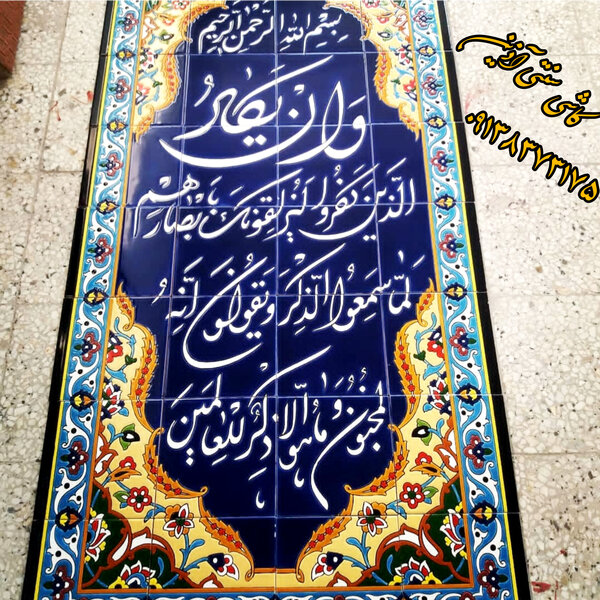 بسم الله الرحمن الرحیم
وان یکاد
الذین کفروا لیزلقونک بابصارهم
لما سمعوا الذکر و یقولون انه
لمجنون و ما هو الا ذکر للعالمین
کاشی سنتی آذین
۰۹۱۳۸۳۷۳۱۷۵